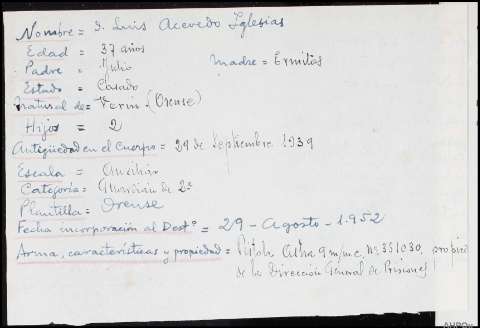 Nombre = D. Luis Acevedo Iglesias
Edad = 37 años
Padre = Julio Madre = Ermitas
Estado = Casado
Natural de = Verin (Orense)
Hijos = 2
Antigüedad en el Cuerpo = 29 de Septiembre 1939
Escala = Auxiliar
Categoría = Guardián de 2ª
Plantilla = Orense
Fecha incorporación al Dest.º = 29 - Agosto - 1.952
Arma, características y propiedad = Pistola Astra 9 m/m c. Nº 351030, propied
de la Dirección General de Prisiones